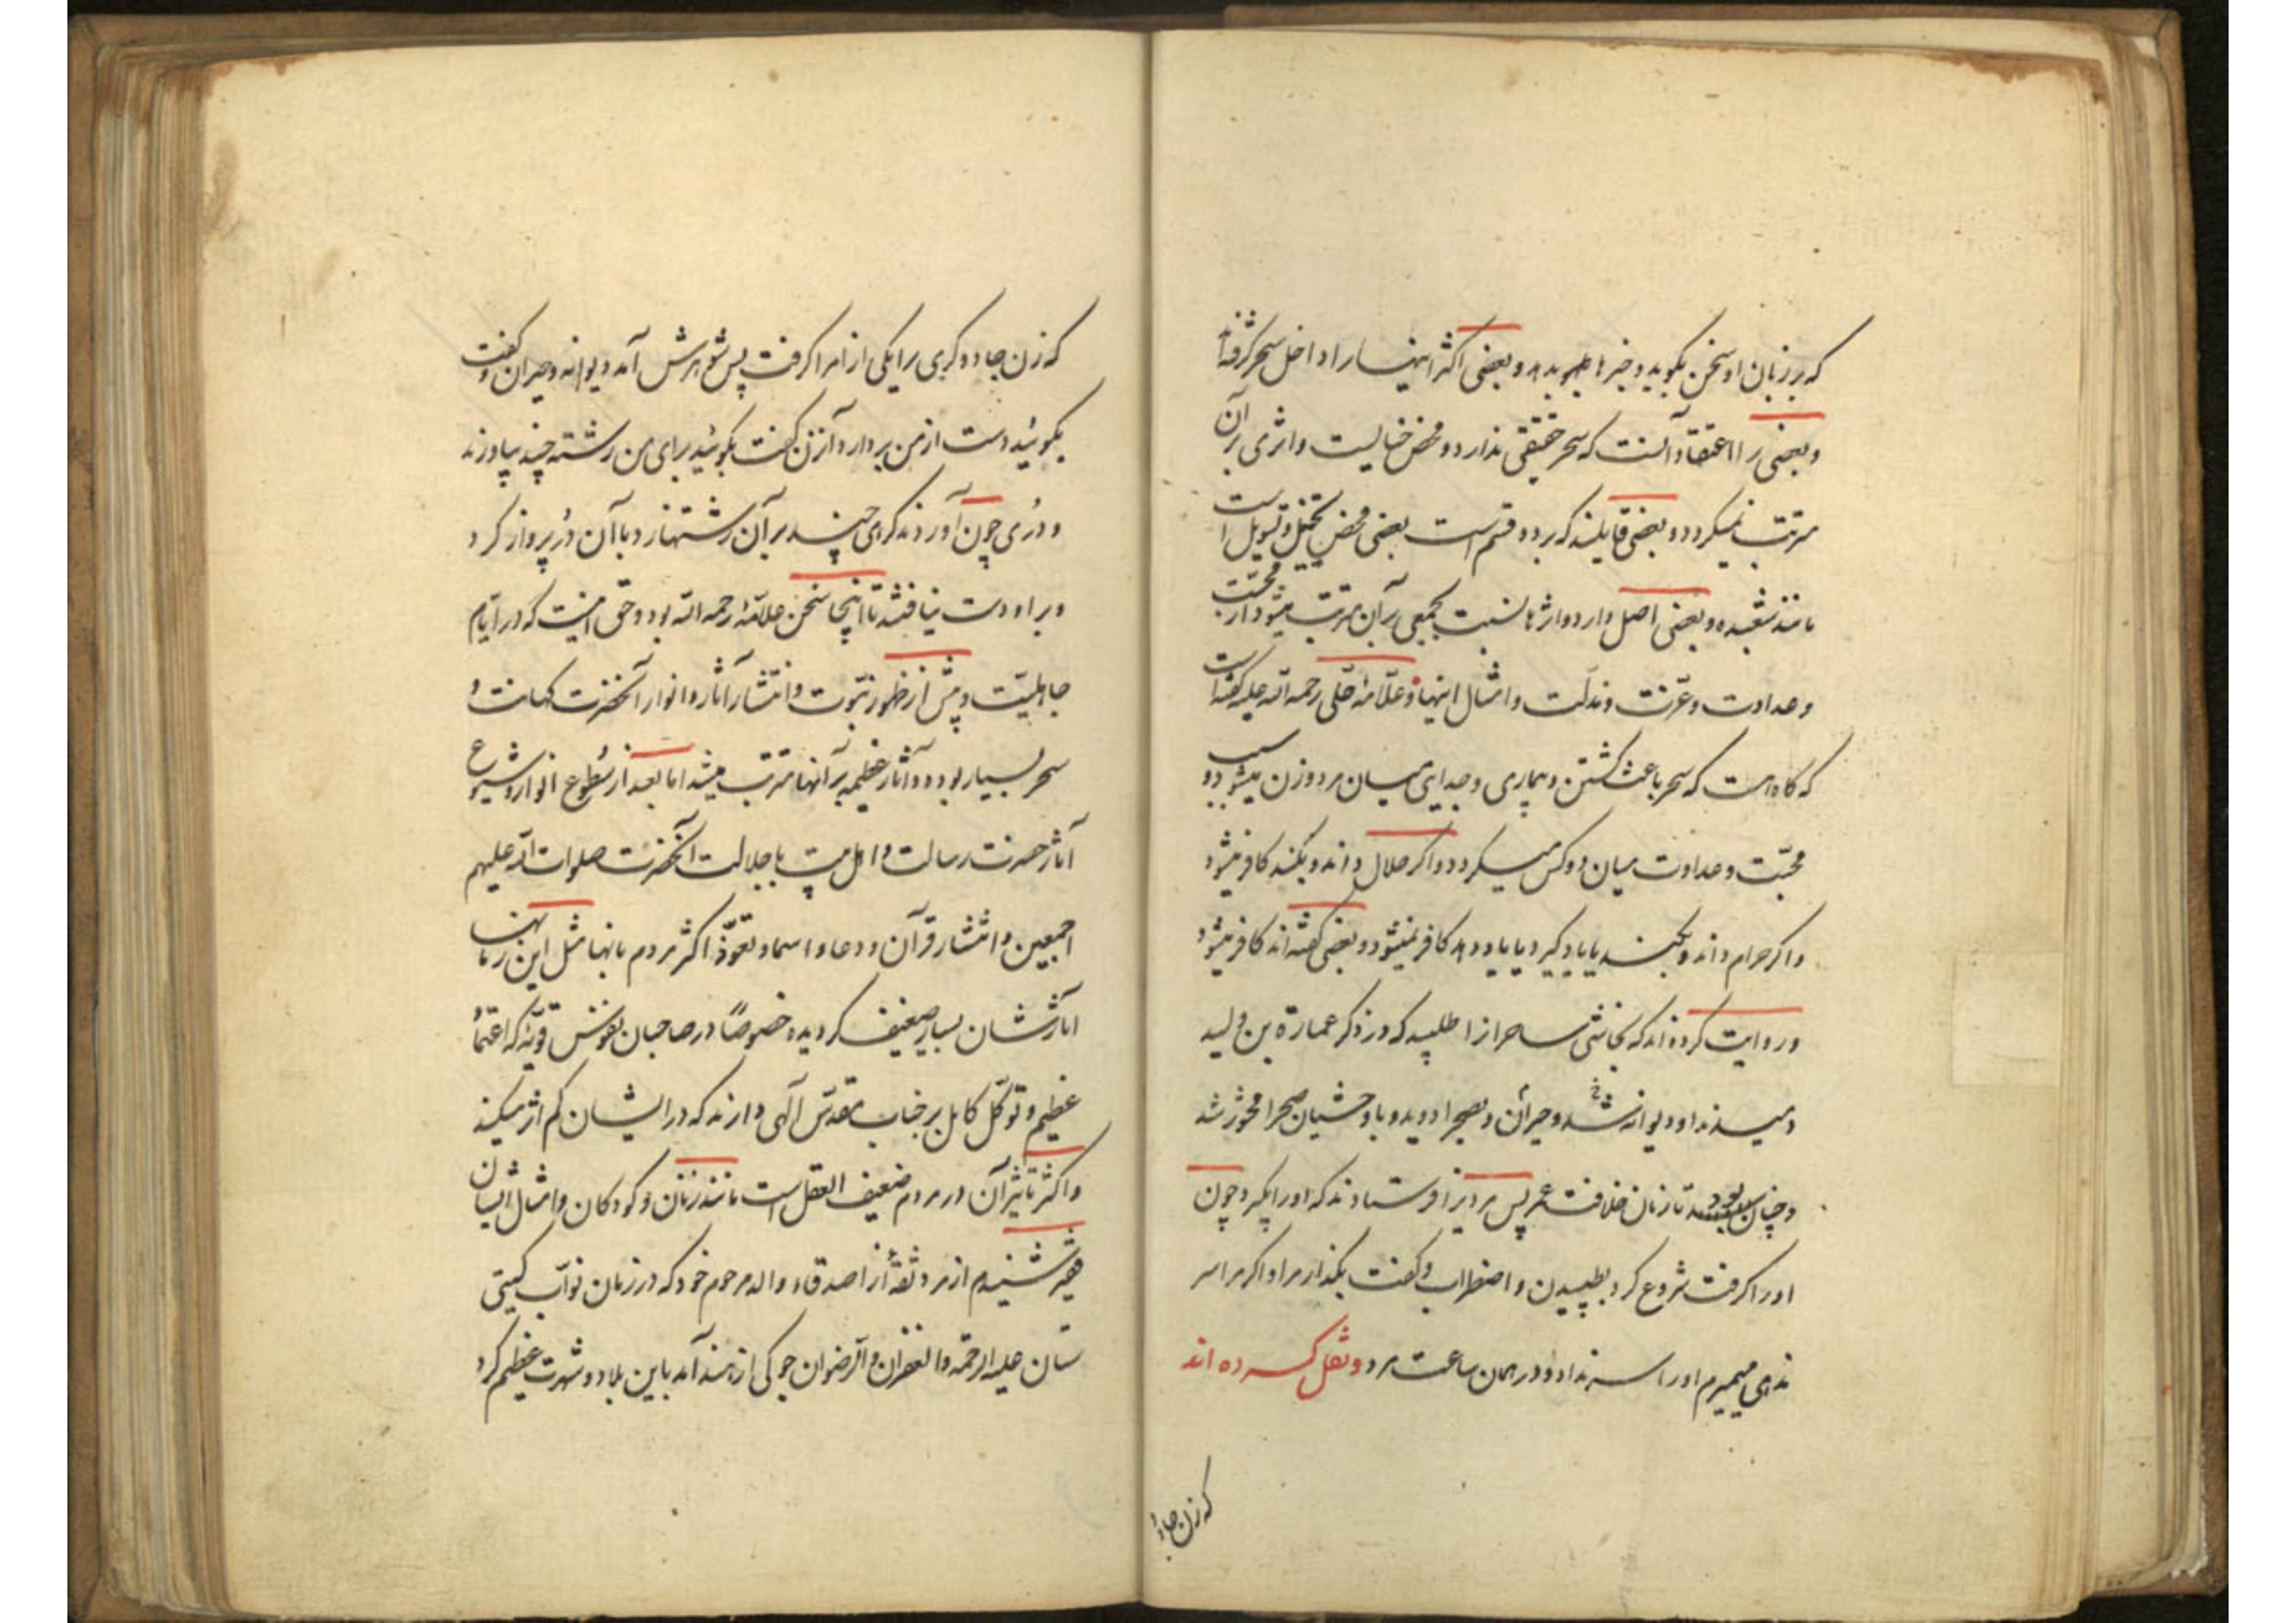 که بر زبان او سخن بگوید و خبرها بدهد و بعضی اکثر اینها را داخل سحر گرفته‌اند
و بعضی را اعتقاد آنست که سحر حقیقتی ندارد و محض خیالیست و اثری بر آن
مرتب نمیگردد و بعضی قایلند که بر دو قسم است بعضی محض تخییل و تسویل است
مانند شعبده و بعضی اصل دارد و اثرها نسبت بجمعی بر آن مرتب میشود از محبّت
و عداوت و عزّت و مذلّت و امثال اینها و علّامهٔ حلّی رحمه الله علیه گفته است
که گاه است که سحر باعث کشتن و بیماری و جدایی میان مرد و زن میشود و سبب
محبّت و عداوت میان دو کس میگردد و اگر حلال داند و بکند کافر میشود
و اگر حرام داند و بکند یا یاد گیرد یا یاد دهد کافر نمیشود و بعضی گفته‌اند کافر میشود
و روایت کرده‌اند که نجاشی ساحران را طلبید که در ذکر عمارة بن ولید
دمیدند او دیوانه شد و حیران و بصحرا دوید و با وحشیان صحرا محشور شد
و چنان بود تا زمان خلافت عمر پس مردی را فرستادند که او را بگیرد چون
او را گرفت شروع کرد بطپیدن و اضطراب و گفت بگذار مرا و اگر مرا سر
ندهی میمیرم او را سر نداد و در همان ساعت مرد و نقل کرده اند
که زن جادو
که زن جادوگری را یکی از امرا گرفت پس شوهرش آمد دیوانه و حیران و گفت
بگوئید دست از من بردارد آن زن گفت بگوئید برای من رشته چند بیاورند
و دری چون آوردند گرهی چند بر آن رشتها زد و با آن در پرواز کرد
و بر او دست نیافتند تا اینجا سخن علامهٔ رحمه الله بود و حق اینست که در ایّام
جاهلیّت و پیش از ظهور نبوّت و انتشار آثار و انوار آنحضرت کهانت و
سحر بسیار بوده و آثار عظیمه بر آنها مترتب میشد اما بعد از سطوع انوار و شیوع
آثار حضرت رسالت و اهل بیت با جلالت آنحضرت صلوات الله علیهم
اجمعین و انتشار قرآن و دعا و اسما و تعوّذ اکثر مردم بانها مثل این زمانها
آثارشان بسیار ضعیف گردیده خصوصًا در صاحبان نفوس قویّه که اعتماد
عظیم و توکّل کامل بر جناب مقدّس الٓهی دارند که در ایشان کم اثر میکند
و اکثر تاثیر آن در مردم ضعیف العقل است مانند زنان و کودکان و امثال ایشان
فقیر شنیدم از مرد ثقهٔ از اصدقاء والد مرحوم خود که در زمان نوّاب گیتی
ستان علیه الرحمة و الغفران و الرضوان جوکی از هند آمد باین بلاد و شهرت عظیم کرد